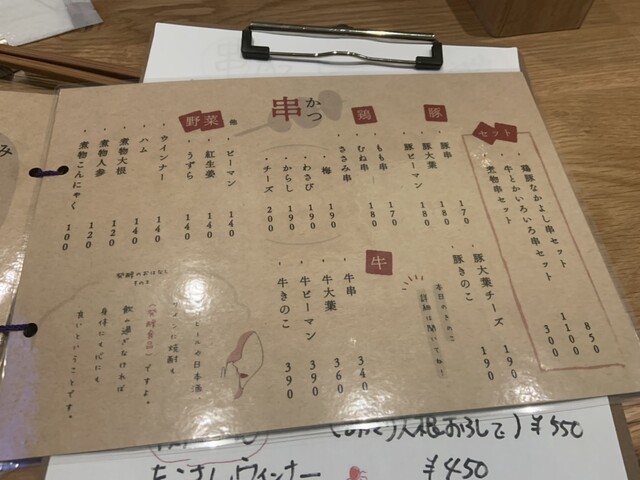 串かつ
セット
鶏豚なかよし串セット 850
牛とかいろいろ串セット 1100
煮物串セット 300
豚
豚串 170
豚大葉 180
豚ピーマン 180
豚大葉チーズ 190
豚きのこ 190
本日のきのこ
詳細は聞いてね!
鶏
もも串 170
むね串 180
ささみ串
梅 190
わさび 190
からし 190
チーズ 200
牛
牛串 340
牛大葉 360
牛ピーマン 390
牛きのこ 390
野菜 他
ピーマン 140
紅生姜 140
うずら 140
ウインナー 140
ハム 140
煮物大根 140
煮物人参 120
煮物こんにゃく 100
発酵のおはなし
その3
ビールや日本酒
ワインに焼酎も
「発酵食品」ですよ。
飲み過ぎなければ
身体にも心にも
良いということです。
み
大根おろしで) ¥550
ウィンナー ¥450